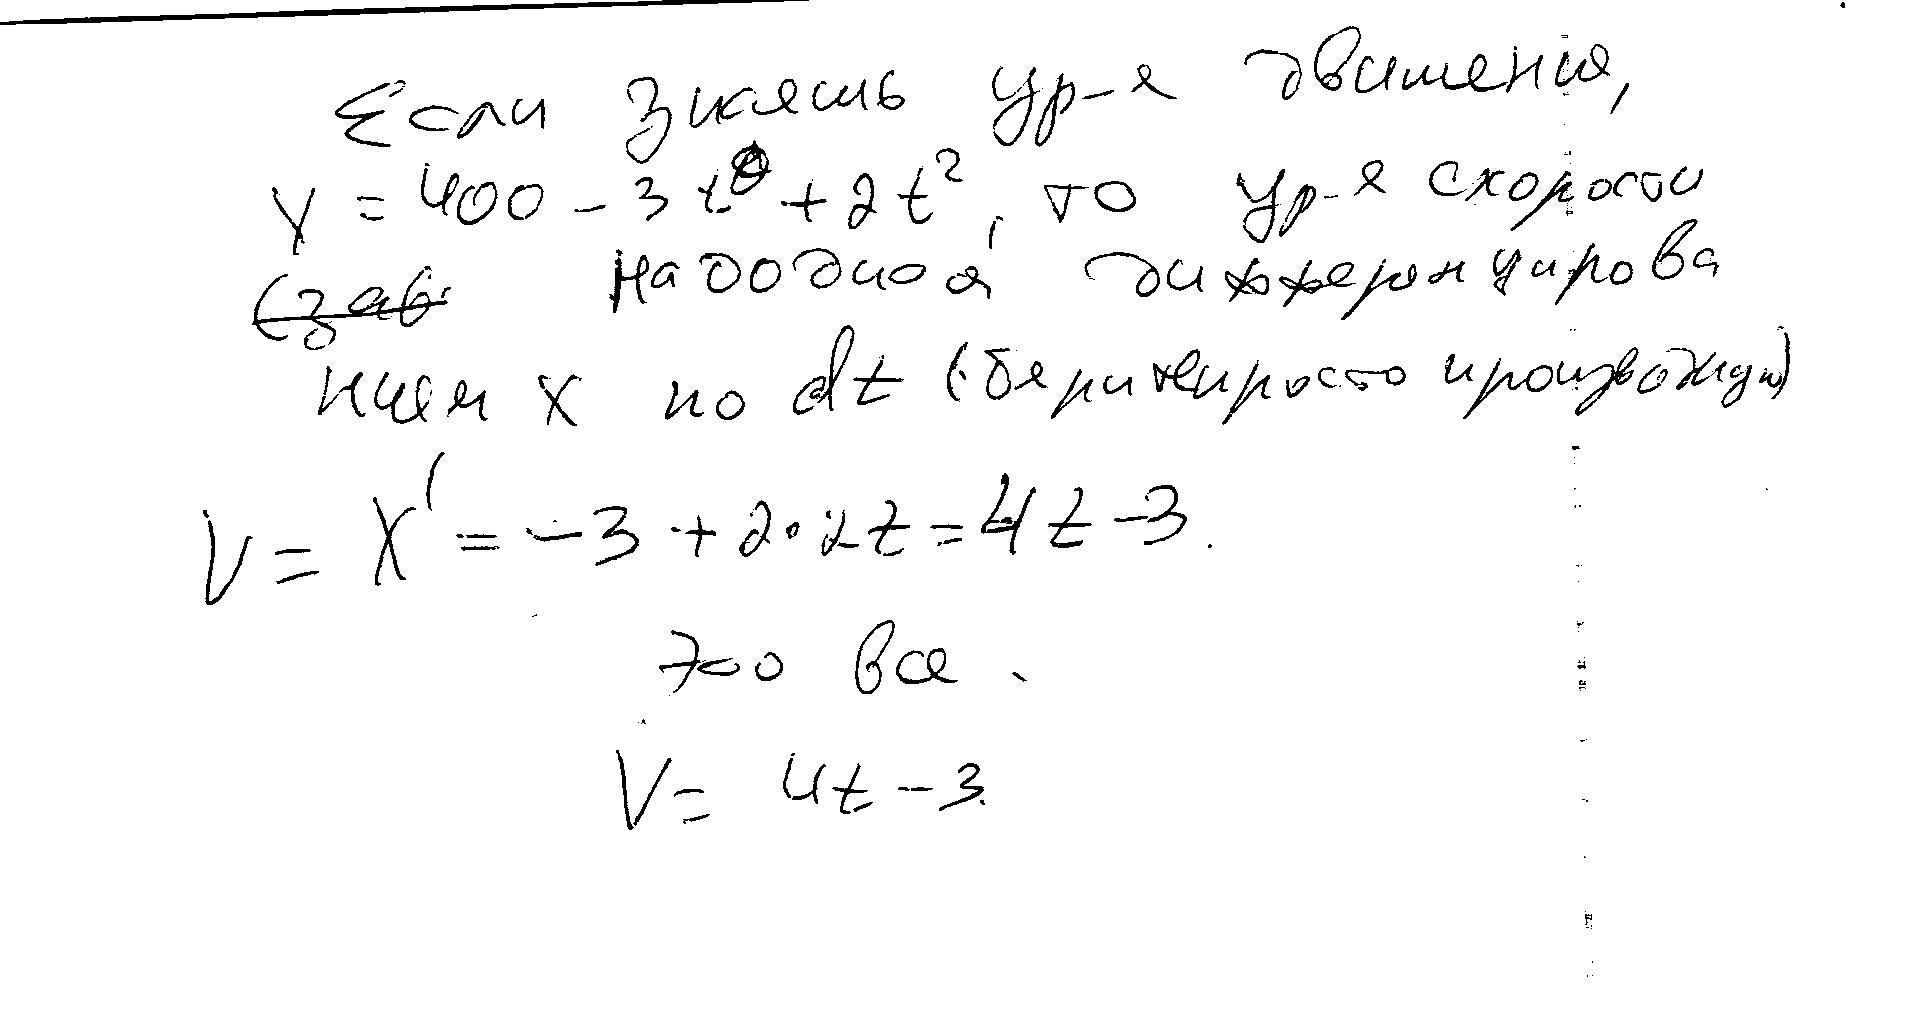 Если знаешь ур-я движения,
x = 400 - 3t + 2t², то ур-я скорости
(зав находися дифференцирова
нием x по dt (берем просто производную)
V = X' = -3 + 2·2t = 4t - 3.
это все.
V = 4t - 3.